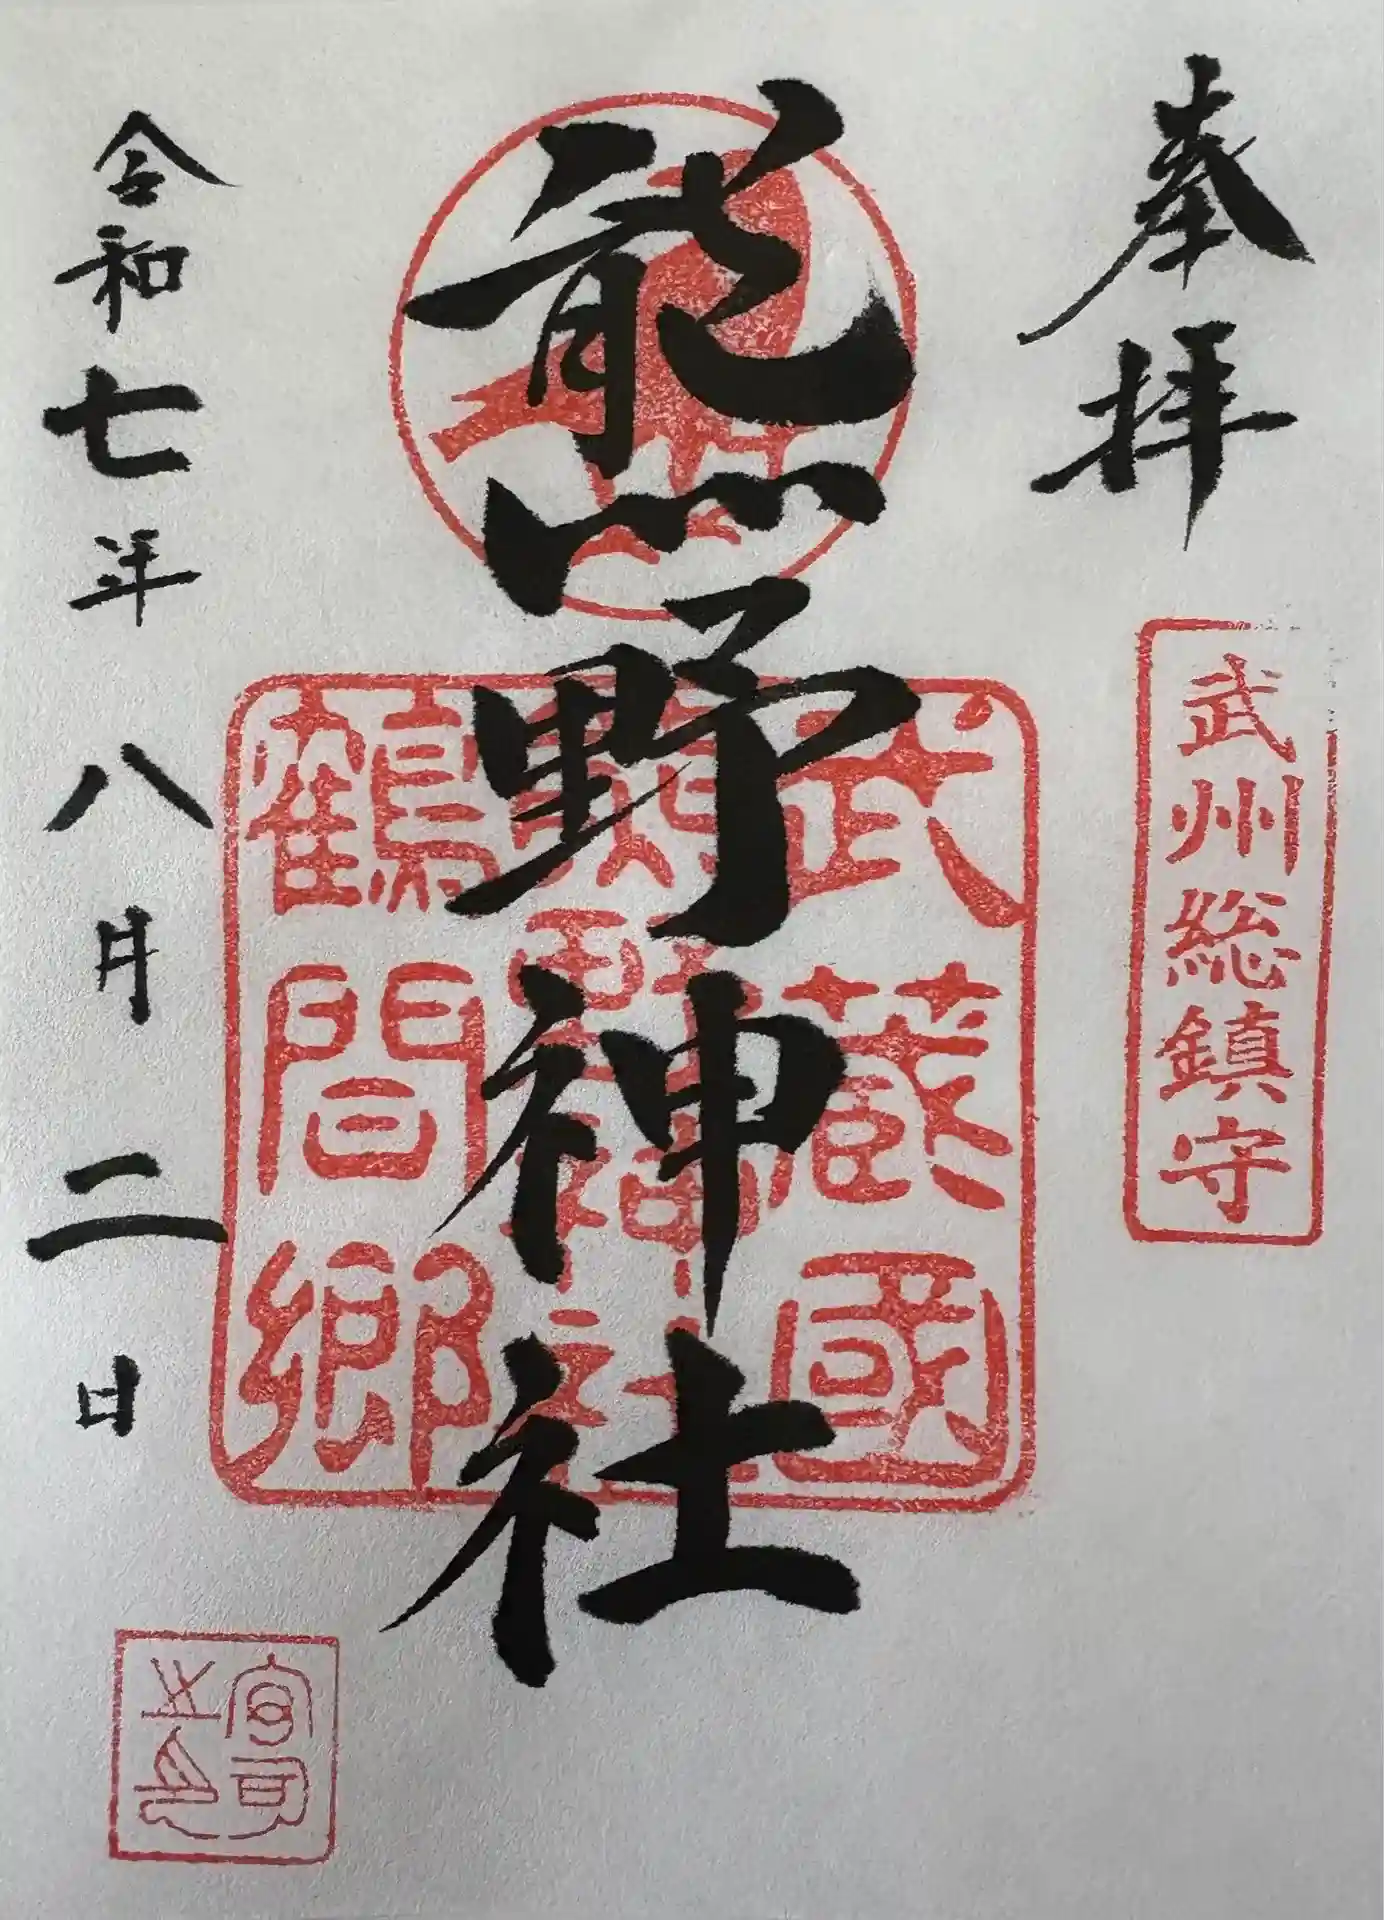 奉拝
武州総鎮守
熊野神社
武蔵國
熊野神社
鶴間郷
令和七年八月二日
宮司之印